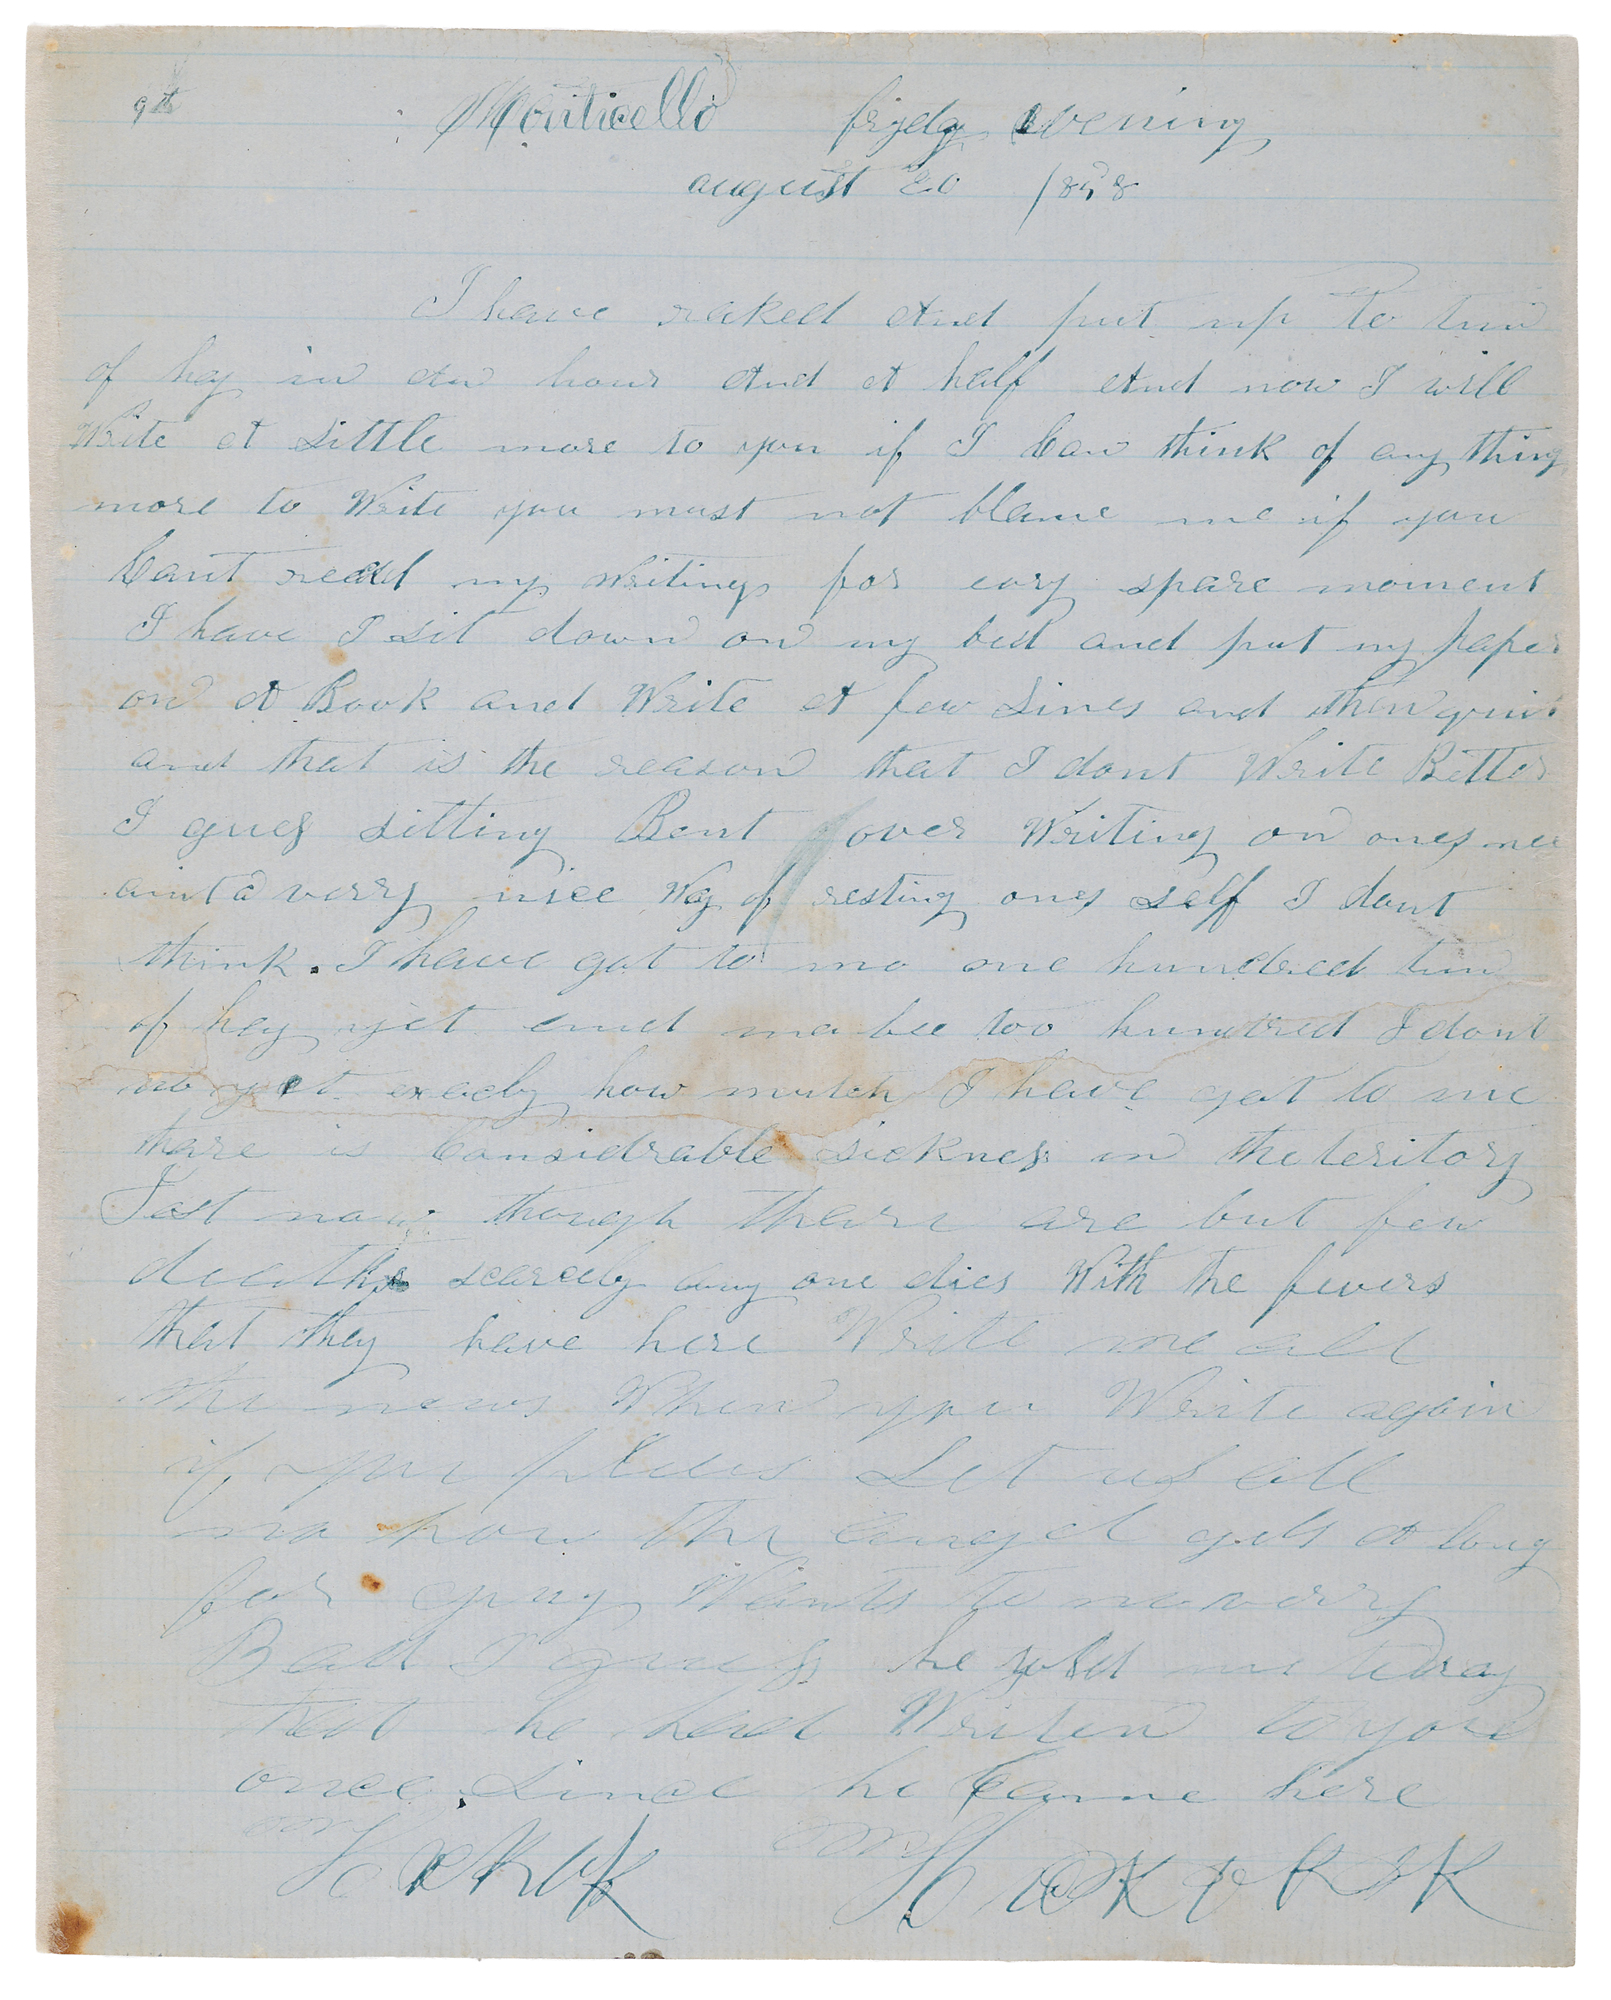 9th Monticello fryday evening
august 20 1858
I have raked And put up To tun
of hay in An hour And A half And now I will
Write A Little more to you if I Can think of any thing
more to Write you must not blame me if you
Cant read my writings for evry spare moment
I have I sit down on my bed and put my paper
on A Book and Write A few Lines and then quit
and that is the reason that I dont Write Better
I guess sitting Bent over Writing on ones nee
aint a verry nice Way of resting ones self I dont
think. I have got to mo one hundred tun
of hay yet and ma bee too hundred I dont
no yet exacly how mutch I have got to mo
thare is Considrable sickness in the teritory
Jast now though thare are but few
deaths scarcely any one dies With the fevers
that they have here Write me all
the news When you Write again
if you pleas Let us all
no how the gets A long
for Wants to no verry
Bad I guess he told me today
that he had Writen to you
once Since he Came here